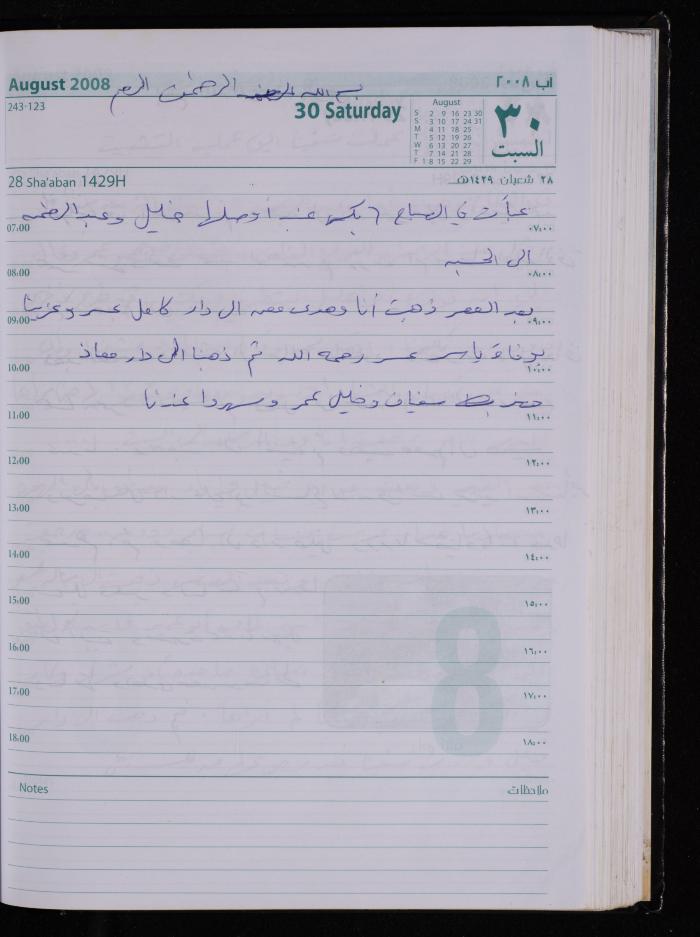 August 2008 بسم الله الرحمن الرحيم آب ٢٠٠٨
243-123 30 Saturday ٣٠ السبت
August
S 2 9 16 23 30
S 3 10 17 24 31
M 4 11 18 25
T 5 12 19 26
W 6 13 20 27
T 7 14 21 28
F 1 8 15 22 29
28 Sha'aban 1429H ٢٨ شعبان ١٤٢٩هـ
عبأت في الصباح ٦ بكس عنب أوصلها خليل وعبد الرحمن
07:00 ٠٧:٠٠
الى الحسبه
08:00 ٠٨:٠٠
بعد العصر ذهبت أنا وهدى معه الى دار كامل عسر وعزينا
09:00 ٠٩:٠٠
بوفاة ياسر عسر رحمه الله ثم ذهبنا الى دار معاذ
10:00 ١٠:٠٠
حضر سفيان وخليل عمر وسهروا عندنا
11:00 ١١:٠٠
12:00 ١٢:٠٠
13:00 ١٣:٠٠
14:00 ١٤:٠٠
15:00 ١٥:٠٠
16:00 ١٦:٠٠
17:00 ١٧:٠٠
18:00 ١٨:٠٠
8
Notes ملاحظات